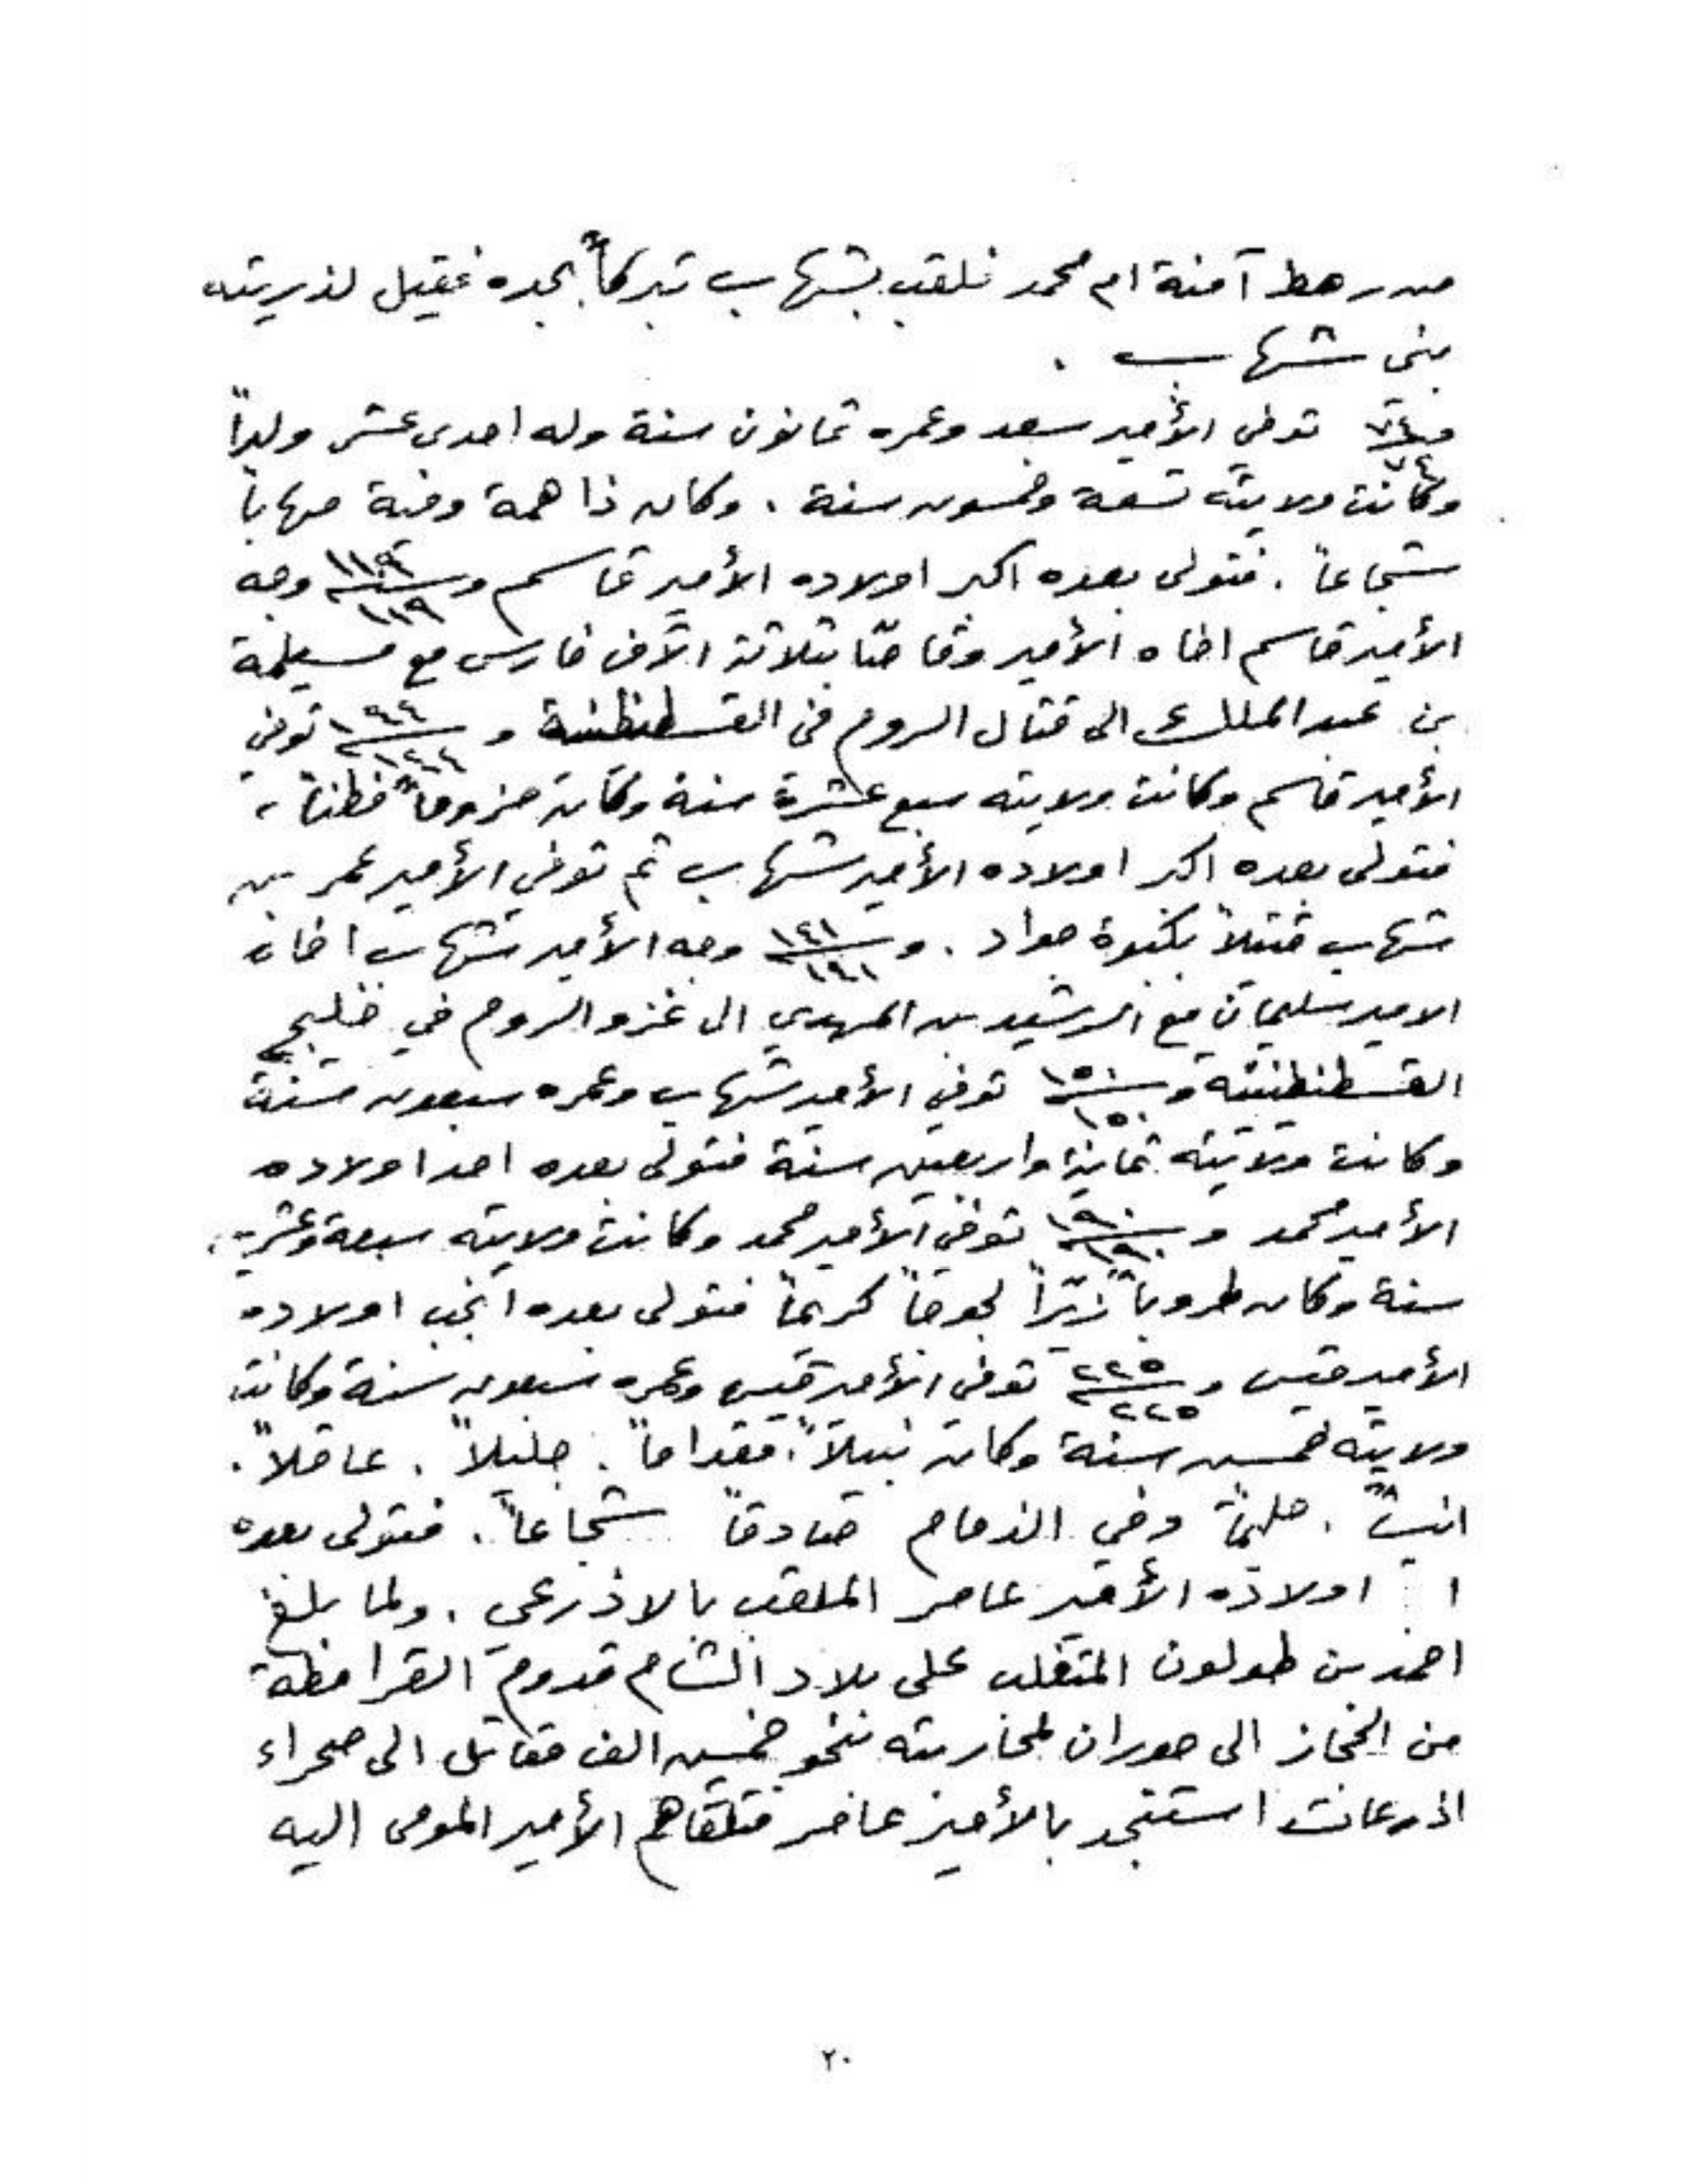 من رهط آمنة ام محمد فلقب بشهاب تبركاً بجده فقيل لذريته
بني شهاب .
و٧٤ توفي الأمير سعد وعمره ثمانون سنة وله احدى عشر ولداً
وكانت ولايته تسعة وخمسون سنة . وكان ذا همة وفية مهاباً
شجاعاً . فتولى بعده اكبر اولاده الأمير قاسم و وجه
الأمير قاسم اخاه الأمير وقاصاً بثلاثة الآف فارس مع مسيلمة
بن عبد الملك الى قتال الروم في القسطنطنية و توفي
الأمير قاسم وكانت ولايته سبع عشرة سنة وكان حزوماً فطناً ،
فتولى بعده اكبر اولاده الأمير شهاب ثم توفي الأمير عمر بن
شهاب قتيلاً بكبوة جواد . و ١٤١ وجه الأمير شهاب اخاه
الامير سليمان مع الرشيد بن المهدي الى غزو الروم في خليج
القسطنطينية و ١٥٠ توفي الأمير شهاب وعمره سبعون سنة
وكانت ولايته ثمانية واربعين سنة فتولى بعده احد اولاده
الأمير محمد و ١٩٠ توفي الأمير محمد وكانت ولايته سبعة وعشرين
سنة وكان طروباً لجوجاً كريماً فتولى بعده انجب اولاده
الأمير قيس و ٢٢٥ توفي الأمير قيس وعمره سبعون سنة وكانت
ولايته خمسين سنة وكان نبيلاً . مقداماً . جليلاً . عاقلاً .
انيساً . حليماً وفي الذمام صادقاً شجاعاً . فتولى بعده
ا اولاده الأمير عامر الملقب بالاذرعي . ولما بلغ
احمد بن طولون المتغلب على بلاد الشام قدوم القرامطة
من الحجاز الى حوران لمحاربته بنحو خمسين الف مقاتل الى صحراء
اذرعات استنجد بالأمير عامر فتلقاهم الأمير المومى اليه
٢٠